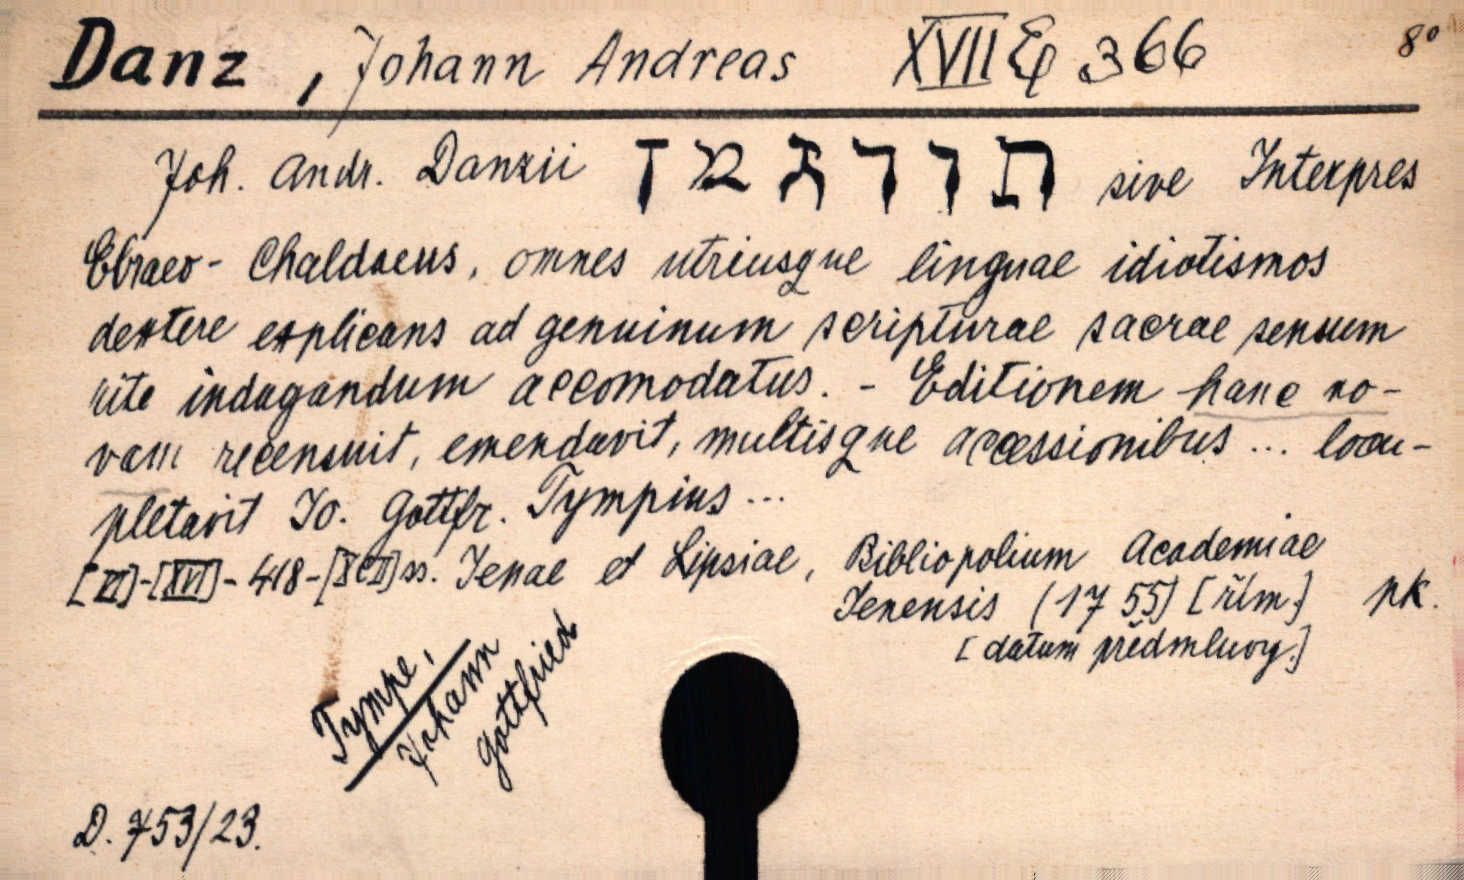 Danz, Johann Andreas XVII E 366 8°
Joh. Andr. Danzii תורגמן sive Interpres
Ebraeo-Chaldaeus, omnes utriusque linguae idiotismos
dextere explicans ad genuinum scripturae sacrae sensum
rite indagandum accomodatus. - Editionem hanc no-
vam recensuit, emendavit, multisque accessionibus ... locu-
pletavit Io. Gottfr. Tympius ...
[XI]-[XVI]-418-[XCII] ss. Ienae et Lipsiae, Bibliopolium Academiae
Ienensis (1755) [řím.] pk.
[datum předmluvy.]
Tympe,
Johann
Gottfried
D. 753/23.